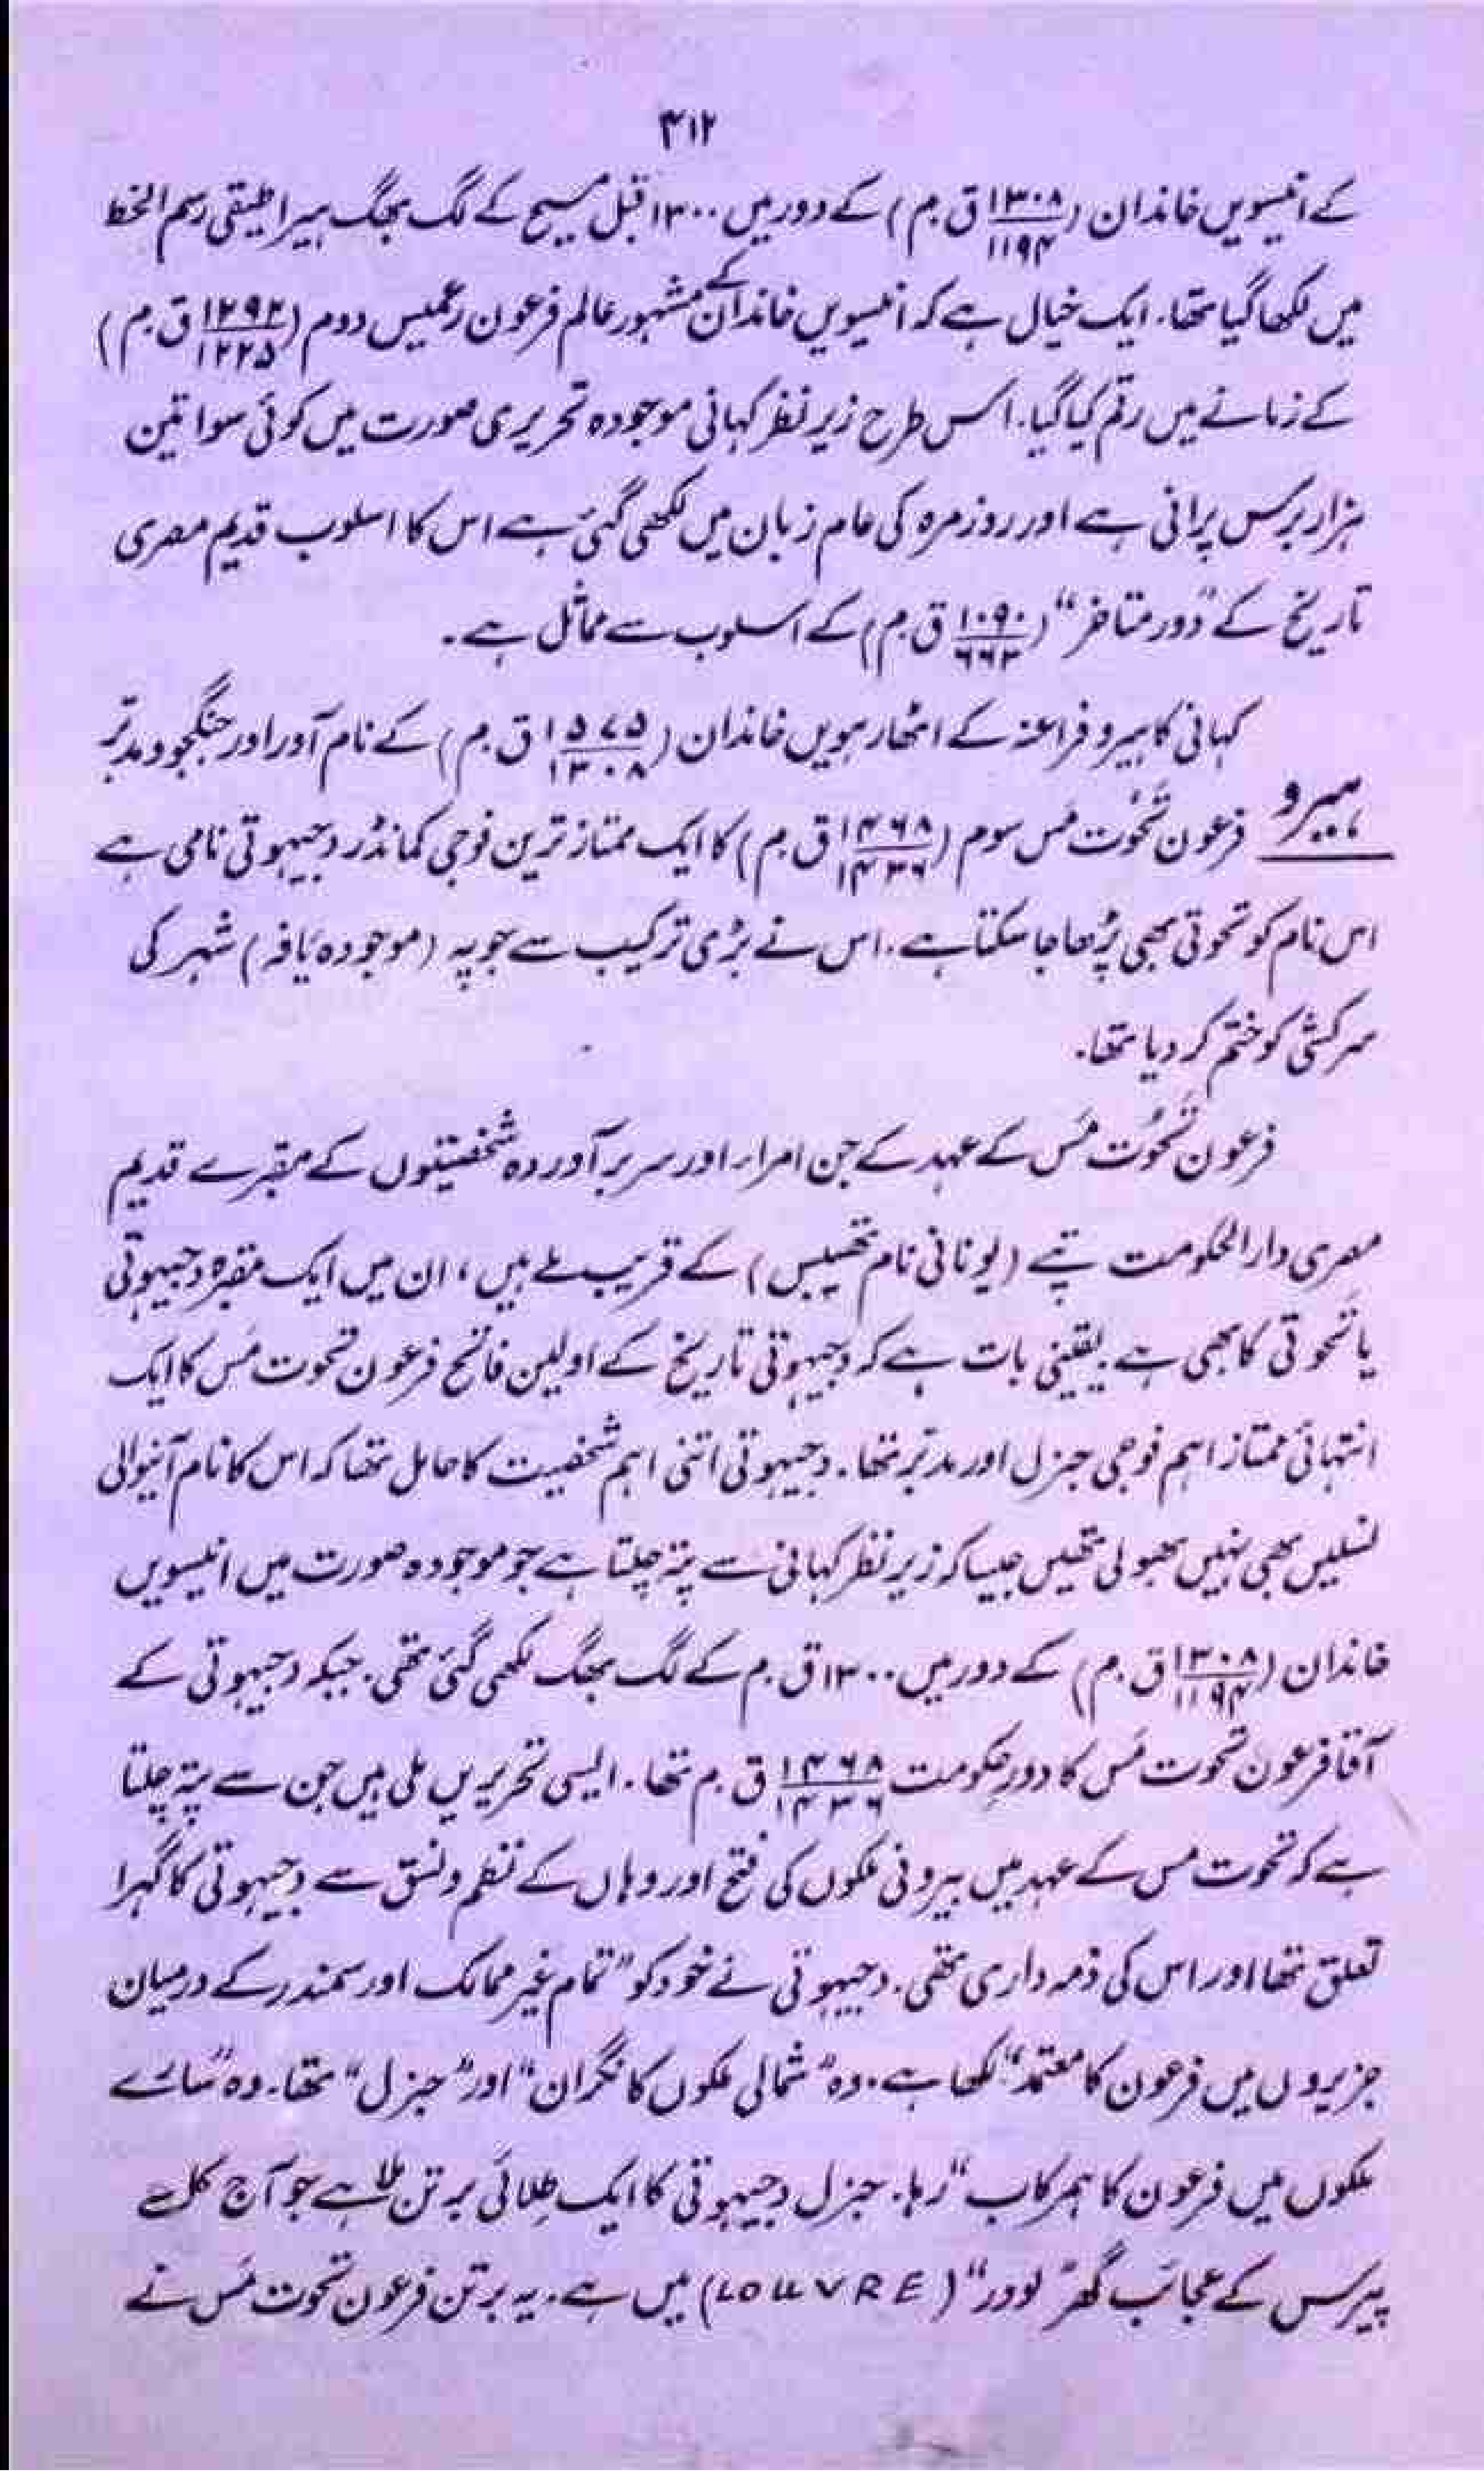 ۴۱۲
کے انیسویں خاندان (۱۳۰۸/۱۱۹۴ ق۔م) کے دور میں ۱۳۰۰ قبل مسیح کے لگ بھگ ہیراطیقی رسم الخط
میں لکھا گیا تھا۔ ایک خیال ہے کہ انیسویں خاندان کے مشہور عالم فرعون رعمیس دوم (۱۲۹۲/۱۲۲۵ ق۔م)
کے زمانے میں رقم کیا گیا۔ اس طرح زیر نظر کہانی موجودہ تحریری صورت میں کوئی سوا تین
ہزار برس پرانی ہے اور روزمرہ کی عام زبان میں لکھی گئی ہے اس کا اسلوب قدیم مصری
تاریخ کے "دور متاخر" (۱۰۹۰/۶۶۳ ق۔م) کے اسلوب سے مماثل ہے۔
کہانی کا ہیرو فراعنہ کے اٹھارہویں خاندان (۱۵۷۵/۱۳۰۸ ق۔م) کے نام آور اور جنگجو و مدبّر
ہیرو فرعون تحُوت مَس سوم (۱۴۶۸/۱۴۳۶ ق۔م) کا ایک ممتاز ترین فوجی کمانڈر دجیہوتی نامی ہے
اس نام کو تحوتی بھی پڑھا جا سکتا ہے۔ اس نے بڑی ترکیب سے جوپہ (موجودہ یافہ) شہر کی
سرکشی کو ختم کر دیا تھا۔
فرعون تحُوت مَس کے عہد کے جن امراء اور سربرآوردہ شخصیتوں کے مقبرے قدیم
مصری دارالحکومت تپے (یونانی نام تھیبس) کے قریب ملے ہیں، ان میں ایک مقبرہ دجیہوتی
یا تحوتی کا بھی ہے۔ یقینی بات ہے کہ دجیہوتی تاریخ کے اولین فاتح فرعون تحوت مَس کا ایک
انتہائی ممتاز اہم فوجی جنرل اور مدبّر تھا۔ دجیہوتی اتنی اہم شخصیت کا حامل تھا کہ اس کا نام آنیوالی
نسلیں بھی نہیں بھولی تھیں جیسا کہ زیر نظر کہانی سے پتہ چلتا ہے جو موجودہ صورت میں انیسویں
خاندان (۱۳۰۸/۱۱۹۴ ق۔م) کے دور میں ۱۳۰۰ ق۔م کے لگ بھگ لکھی گئی تھی۔ جبکہ دجیہوتی کے
آقا فرعون تحوت مَس کا دورِ حکومت ۱۴۶۸/۱۴۳۶ ق۔م تھا۔ ایسی تحریریں ملی ہیں جن سے پتہ چلتا
ہے کہ تحوت مس کے عہد میں بیرونی ملکوں کی فتح اور وہاں کے نظم و نسق سے دجیہوتی کا گہرا
تعلق تھا اور اس کی ذمہ داری تھی۔ دجیہوتی نے خود کو "تمام غیر ممالک اور سمندر کے درمیان
جزیروں میں فرعون کا معتمد" لکھا ہے۔ وہ "شمالی ملکوں کا نگران" اور "جنرل" تھا۔ وہ "سارے
ملکوں میں فرعون کا ہمرکاب" رہا۔ جنرل دجیہوتی کا ایک طلائی برتن ملا ہے جو آج کل
پیرس کے عجائب گھر "لوور" (LOUVRE) میں ہے۔ یہ برتن فرعون تحوت مَس نے